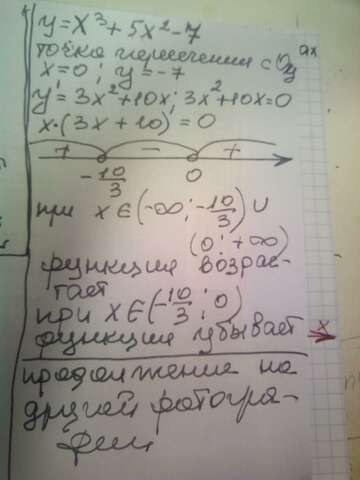 y = x³ + 5x² - 7
точка пересечения с Oy
ax
x=0; y=-7
y' = 3x²+10x; 3x²+10x=0
x·(3x+10)=0
+ - +
-10/3 0
при x∈(-∞; -10/3) ∪
(0; +∞)
функция возрас-
тает
при x∈(-10/3; 0)
функция убывает
x
продолжение на
другой фотогра-
фии